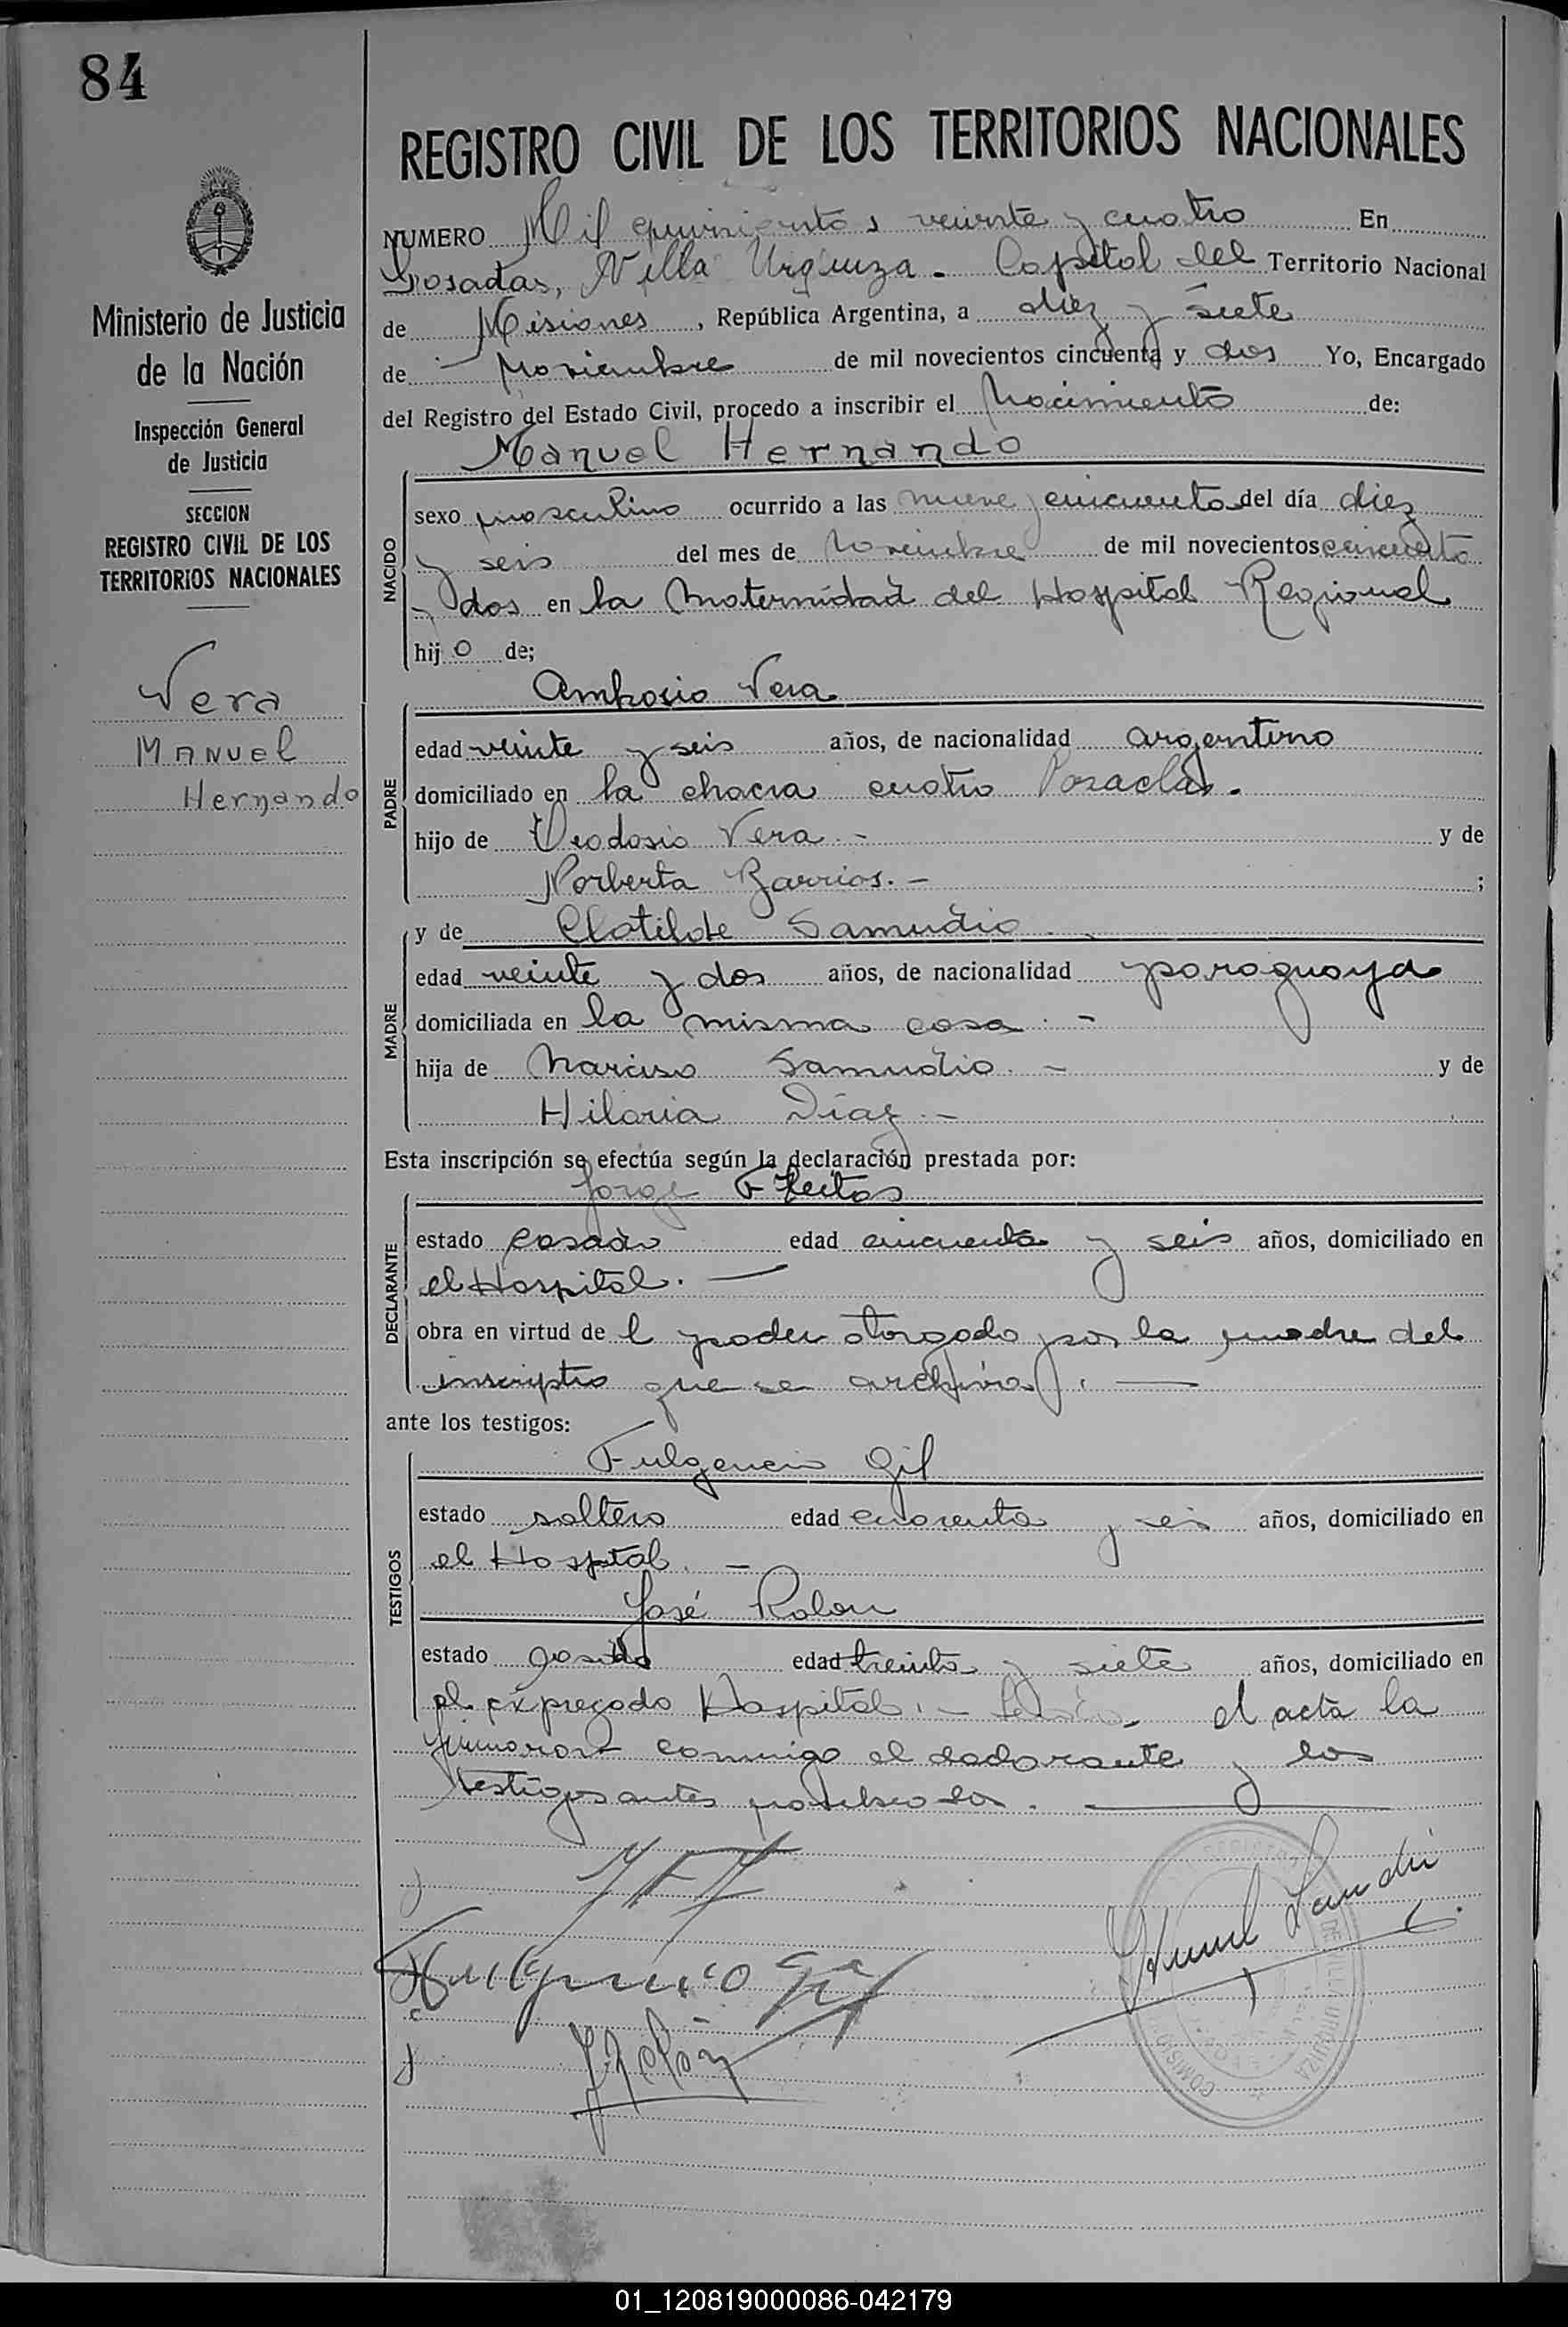 84
Ministerio de Justicia
de la Nación
Inspección General
de Justicia
SECCION
REGISTRO CIVIL DE LOS
TERRITORIOS NACIONALES
Vera
Manuel
Hernando
REGISTRO CIVIL DE LOS TERRITORIOS NACIONALES
NUMERO Mil quinientos veinte y cuatro En
Posadas, Villa Urquiza - Capital del Territorio Nacional
de Misiones, República Argentina, a diez y siete
de Noviembre de mil novecientos cincuenta y dos Yo, Encargado
del Registro del Estado Civil, procedo a inscribir el Nacimiento de:
Manuel Hernando
NACIDO
sexo masculino ocurrido a las nueve y cincuenta del día diez
y seis del mes de Noviembre de mil novecientos cincuenta
y dos en la Maternidad del Hospital Regional
hijo de;
Ambrosio Vera
PADRE
edad veinte y seis años, de nacionalidad argentino
domiciliado en la chacra cuatro Posadas.
hijo de Teodosio Vera.- y de
Norberta Barrios.- ;
y de Clotilde Samudio
MADRE
edad veinte y dos años, de nacionalidad paraguaya
domiciliada en la misma casa.-
hija de Narciso Samudio.- y de
Hilaria Díaz.-
Esta inscripción se efectúa según la declaración prestada por:
Jorge Fleitas
DECLARANTE
estado casado edad cincuenta y seis años, domiciliado en
el Hospital.-
obra en virtud de l poder otorgado por la madre del
inscripto que se archiva.-
ante los testigos:
Fulgencio Gil
TESTIGOS
estado soltero edad cuarenta y seis años, domiciliado en
el Hospital.-
José Rolon
estado casado edad treinta y siete años, domiciliado en
el expresado Hospital.- el acta la
firmaron conmigo el declarante y los
testigos antes nombrados.
Fulgencio Gil
J. Rolón
COMISO
DE VILLA URQUIZA
01_120819000086-042179